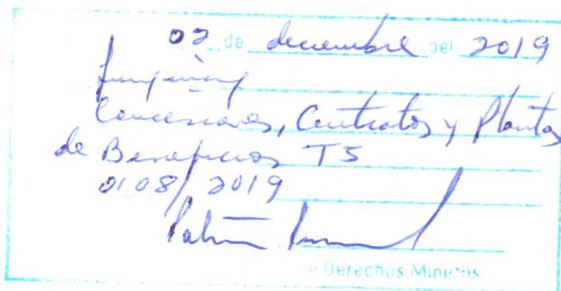 02 de diciembre del 2019
Concesiones, Contratos y Plantas
de Beneficios T5
0108/2019
e Derechos Mineros